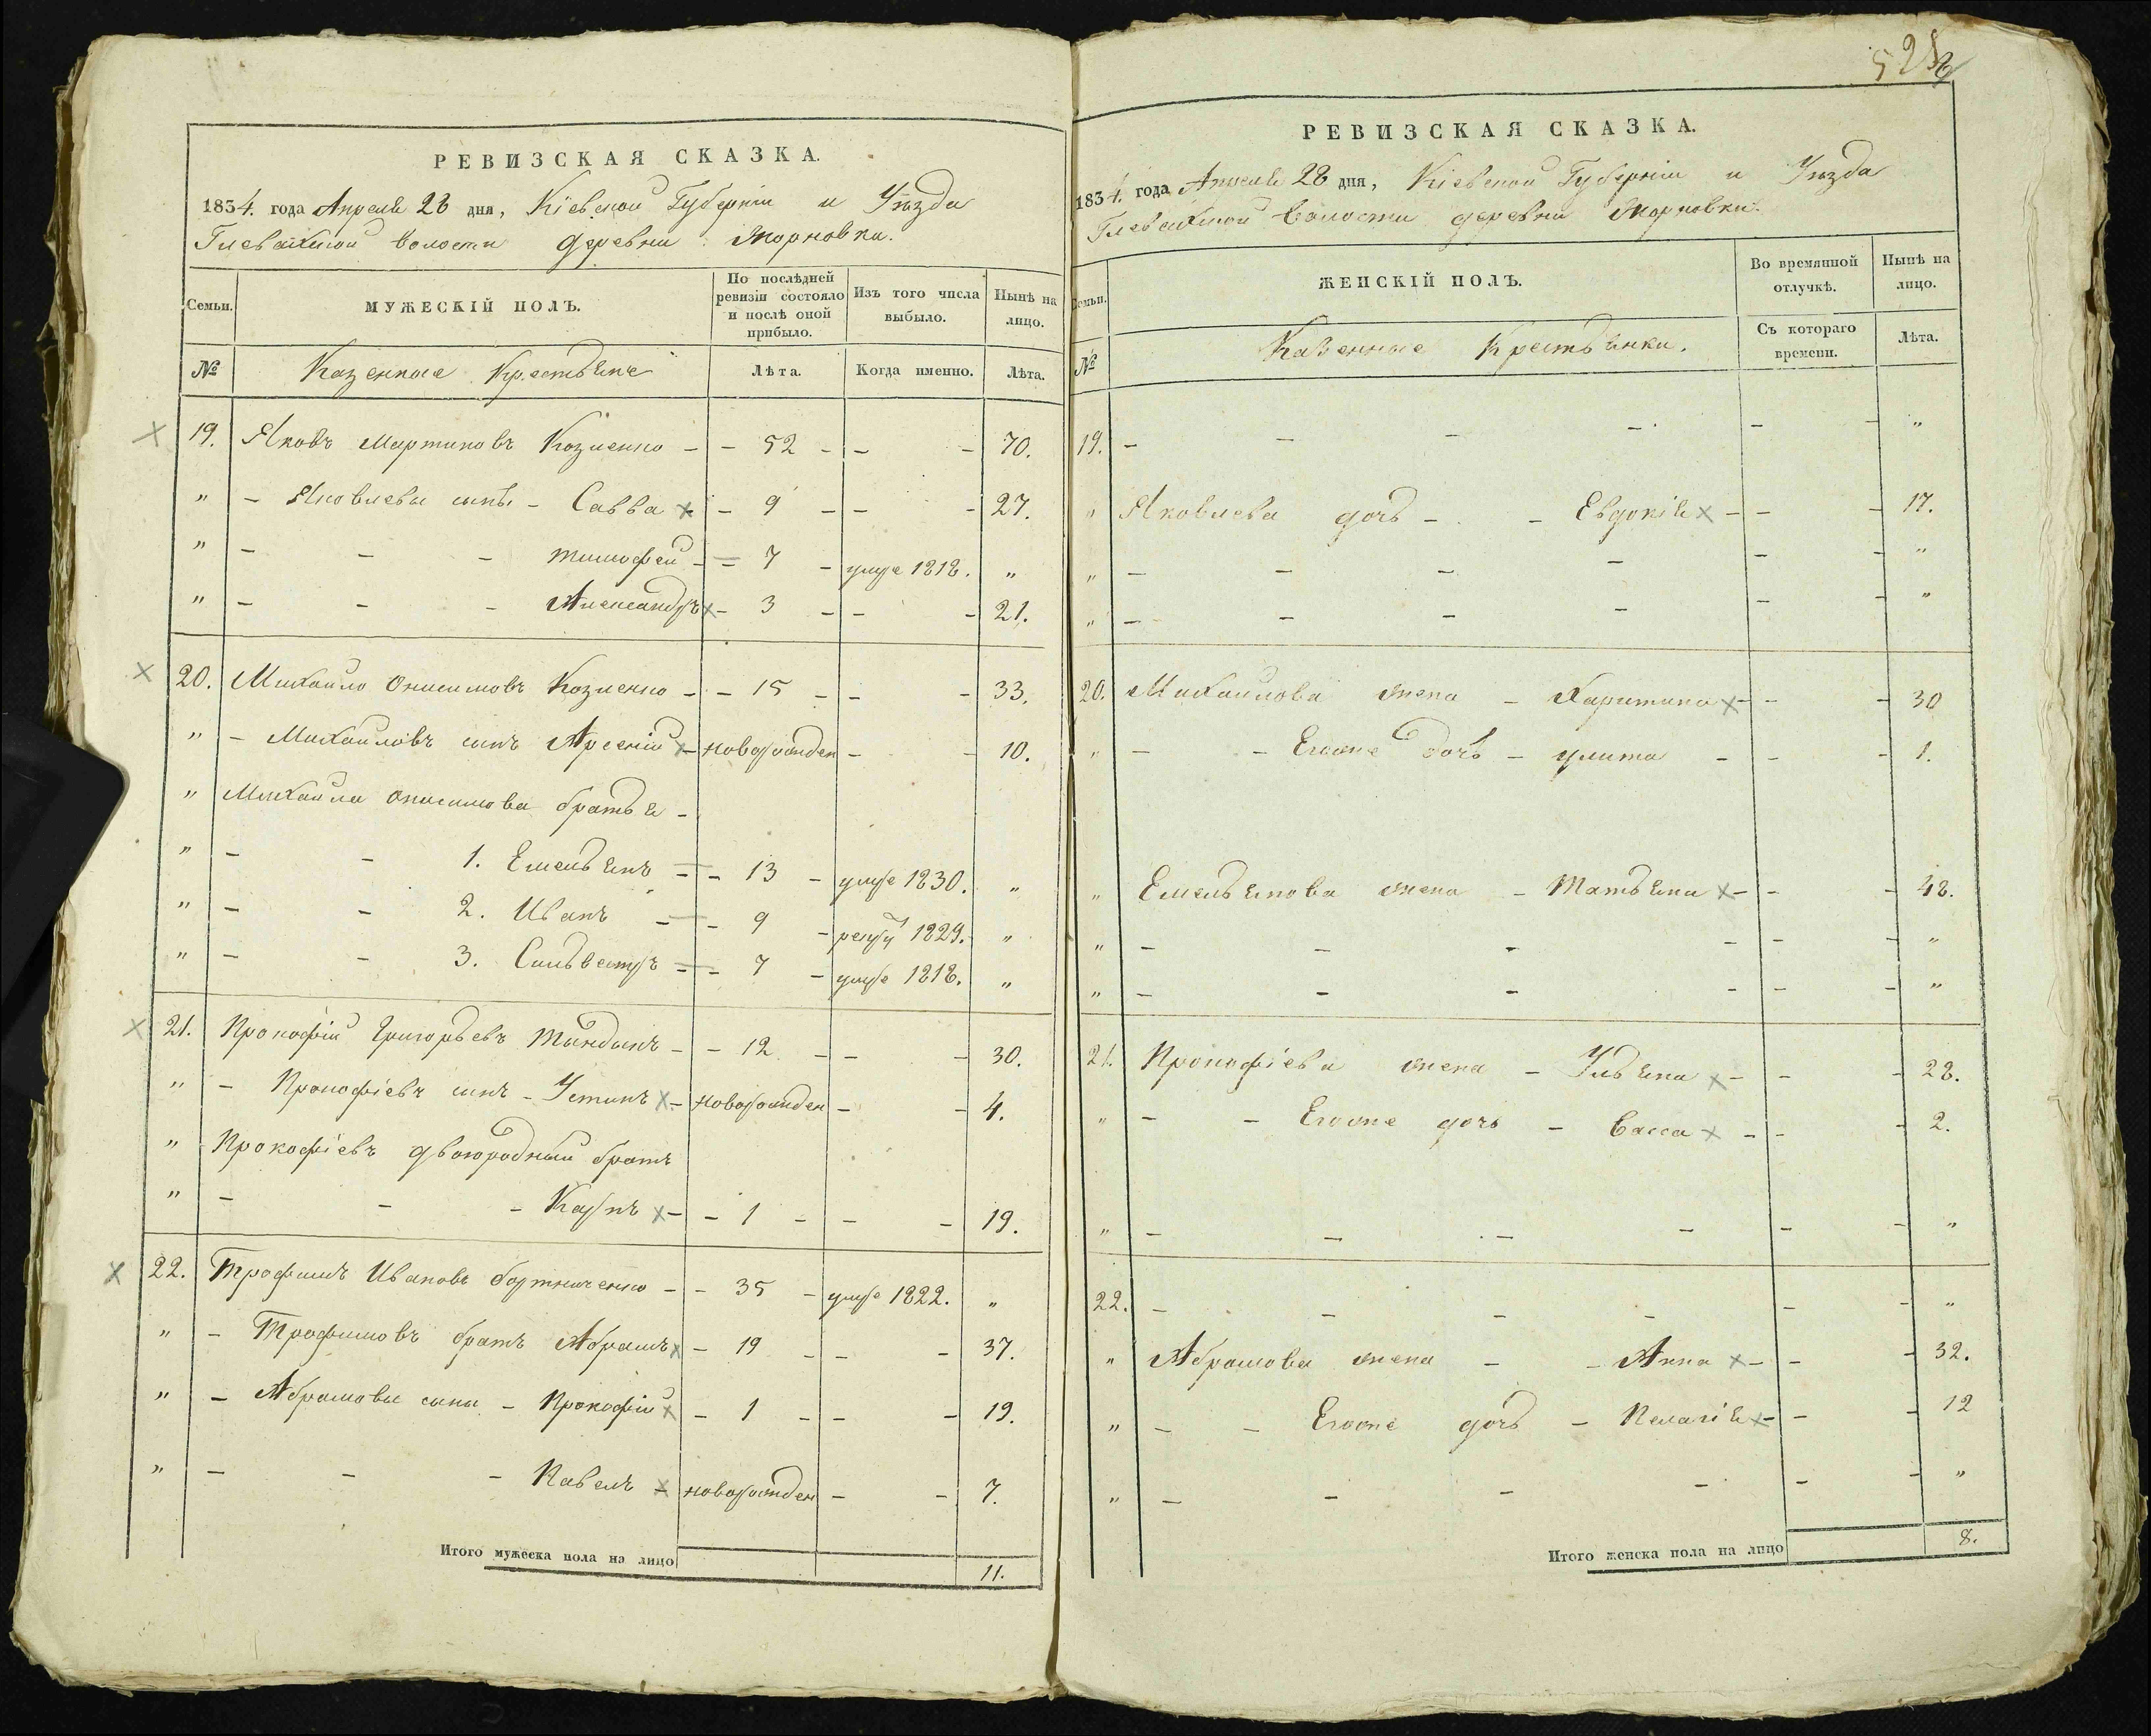 РЕВИЗСКАЯ СКАЗКА.
1834. года Апреля 28 дня, Кіевской Губерніи и Уѣзда
Глевахской волости деревни Жорновки.
Семьи.
МУЖЕСКІЙ ПОЛЪ.
По послѣдней ревизіи состояло и послѣ оной прибыло.
Изъ того числа выбыло.
Нынѣ на лицо.
№
Казенные Крестьяне
Лѣта.
Когда именно.
Лѣта.
19. Яковъ Мартиновъ Козленко - - 52 - - - 70.
" - Яковлевы сынъ - Савва - 9 - - - 27.
" - - - Тимофей - 7 - умре 1818. "
" - - - Александръ - 3 - - - 21.
20. Михайло Онисимовъ Козленко - - 15 - - - 33.
" - Михайловъ сынъ Арсеній - новорожден - - 10.
" Михайла Онисимова братья -
" - - 1. Емельянъ - - 13 - умре 1830. "
" - - 2. Иванъ - - 9 - 1829. "
" - - 3. Сильвестръ - - 7 - умре 1818. "
21. Прокофій Григорьевъ - - 12 - - - 30.
" - Прокофіевъ сынъ - Устинъ - новорожден - - 4.
" Прокофіевъ двоюродный братъ
" - - - Карпъ - - 1 - - - 19.
22. Трофимъ Ивановъ Бортниченко - - 35 - умре 1822. "
" - Трофимовъ братъ Абрамъ - 19 - - - 37.
" - Абрамовы сыны - Прокофій - 1 - - - 19.
" - - - Павелъ - новорожден - - 7.
Итого мужеска пола на лицо 11.
РЕВИЗСКАЯ СКАЗКА.
1834. года Апреля 28 дня, Кіевской Губерніи и Уѣзда
Глевахской волости деревни Жорновки.
Семьи.
ЖЕНСКІЙ ПОЛЪ.
Во времянной отлучкѣ.
Нынѣ на лицо.
№
Казенные Крестьянки.
Съ котораго времени.
Лѣта.
19. - - - - - - "
" Яковлева дочь - - Евдокія - - - 17.
" - - - - - - "
" - - - - - - "
20. Михайлова жена - Харитина - - - 30
" - - Егоже дочь - Улита - - - 1.
" Емельянова жена - Татьяна - - - 48.
" - - - - - - "
" - - - - - - "
21. Прокофіева жена - Ульяна - - - 28.
" - - Егоже дочь - Васса - - - 2.
" - - - - - - "
22. - - - - - - "
" Абрамова жена - - Анна - - - 32.
" - - Егоже дочь - Пелагія - - - 12
" - - - - - - "
Итого женска пола на лицо 8.